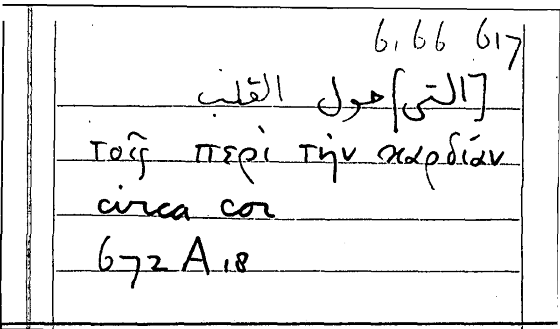 6,66 617
[التى] حول القلب
τοῖς περὶ τὴν καρδίάν
circa cor
672 A 18